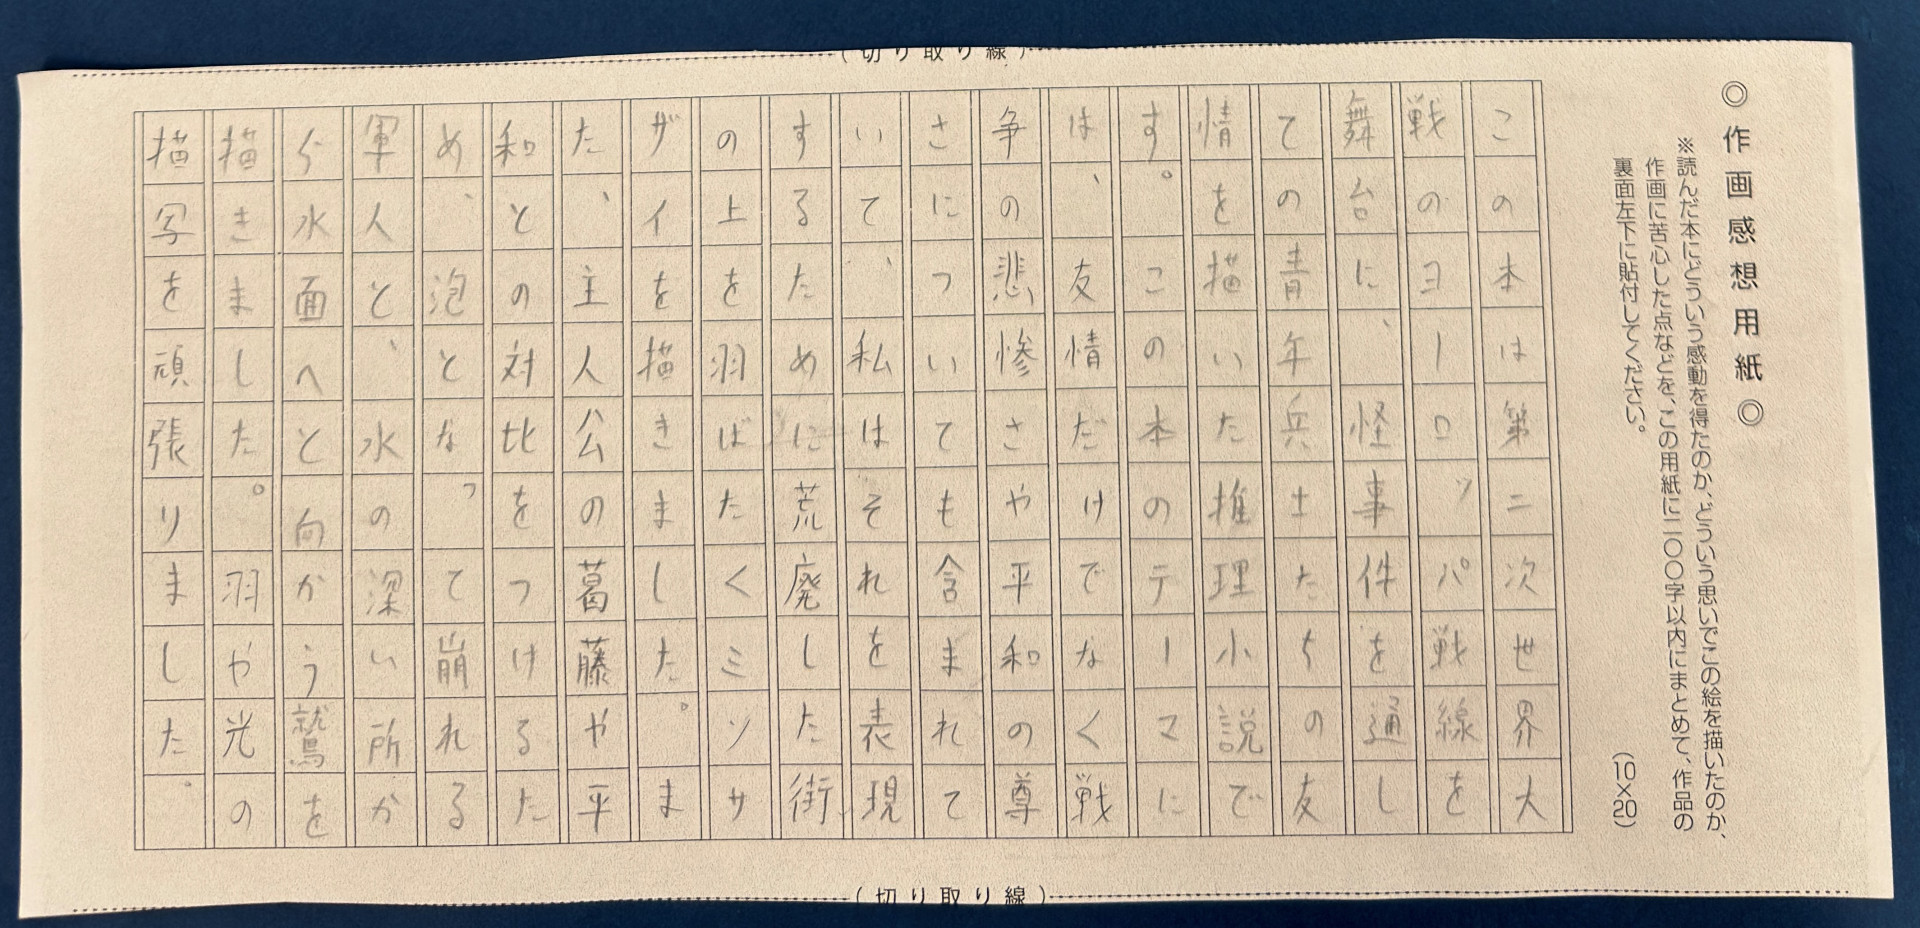 (切り取り線)
◎作画感想用紙◎
※読んだ本にどういう感動を得たのか、どういう思いでこの絵を描いたのか、
作画に苦心した点などを、この用紙に二〇〇字以内にまとめて、作品の
裏面左下に貼付してください。
(10×20)
この本は第二次世界大
戦のヨーロッパ戦線を
舞台に、怪事件を通し
ての青年兵士たちの友
情を描いた推理小説で
す。この本のテーマに
は、友情だけでなく戦
争の悲惨さや平和の尊
さについても含まれて
いて、私はそれを表現
するために荒廃した街
の上を羽ばたくミソサ
ザイを描きました。ま
た、主人公の葛藤や平
和との対比をつけるた
め、泡となって崩れる
軍人と、水の深い所か
ら水面へと向かう鷲を
描きました。羽や光の
描写を頑張りました。
(切り取り線)